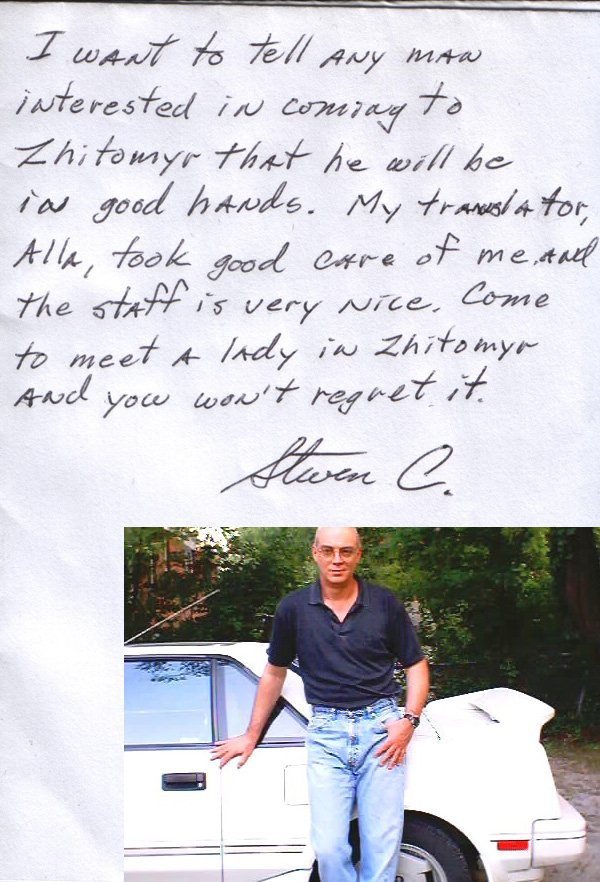 I want to tell any man
interested in coming to
Zhitomyr that he will be
in good hands. My translator,
Alla, took good care of me, and
the staff is very nice. Come
to meet a lady in Zhitomyr
and you won't regret it.
Steven C.